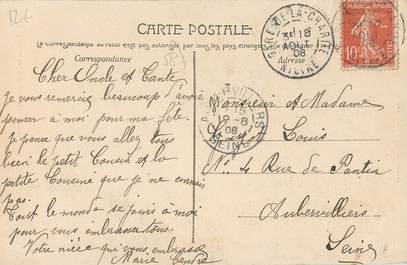 12€
CARTE POSTALE
La Correspondance au recto n'est pas autorisée par tous les pays étrangers
Correspondance
Adresse
GARE-DE-LA-CHARITÉ
18
AOUT
08
NIÈVRE
10
AUBERVILLIERS
19-8
08
SEINE
Cher Oncle et Tante
Je vous remercie beaucoup d'avoir
penser à moi pour ma fête.
Je pense que vous allez tous
bien le petit Cousin et la
petite Cousine que je ne connais
pas.
Tout le monde se joins à moi
pour vous embrassa tous.
Votre nièce qui vous embrasse
Marie
Monsieur et Madame
Louis
N° 4 Rue de Pantin
Aubervilliers
Seine